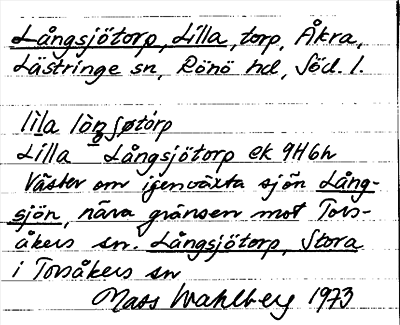 Långsjötorp, Lilla, torp, Åkra,
Lästringe sn, Rönö hd, Söd. l.
lìla lòŋʂøtórp
Lilla Långsjötorp ek 9H6h
Väster om igenväxta sjön Lång-
sjön, nära gränsen mot Tors-
åkers sn. Långsjötorp, Stora
i Torsåkers sn
Mats Wahlberg 1973